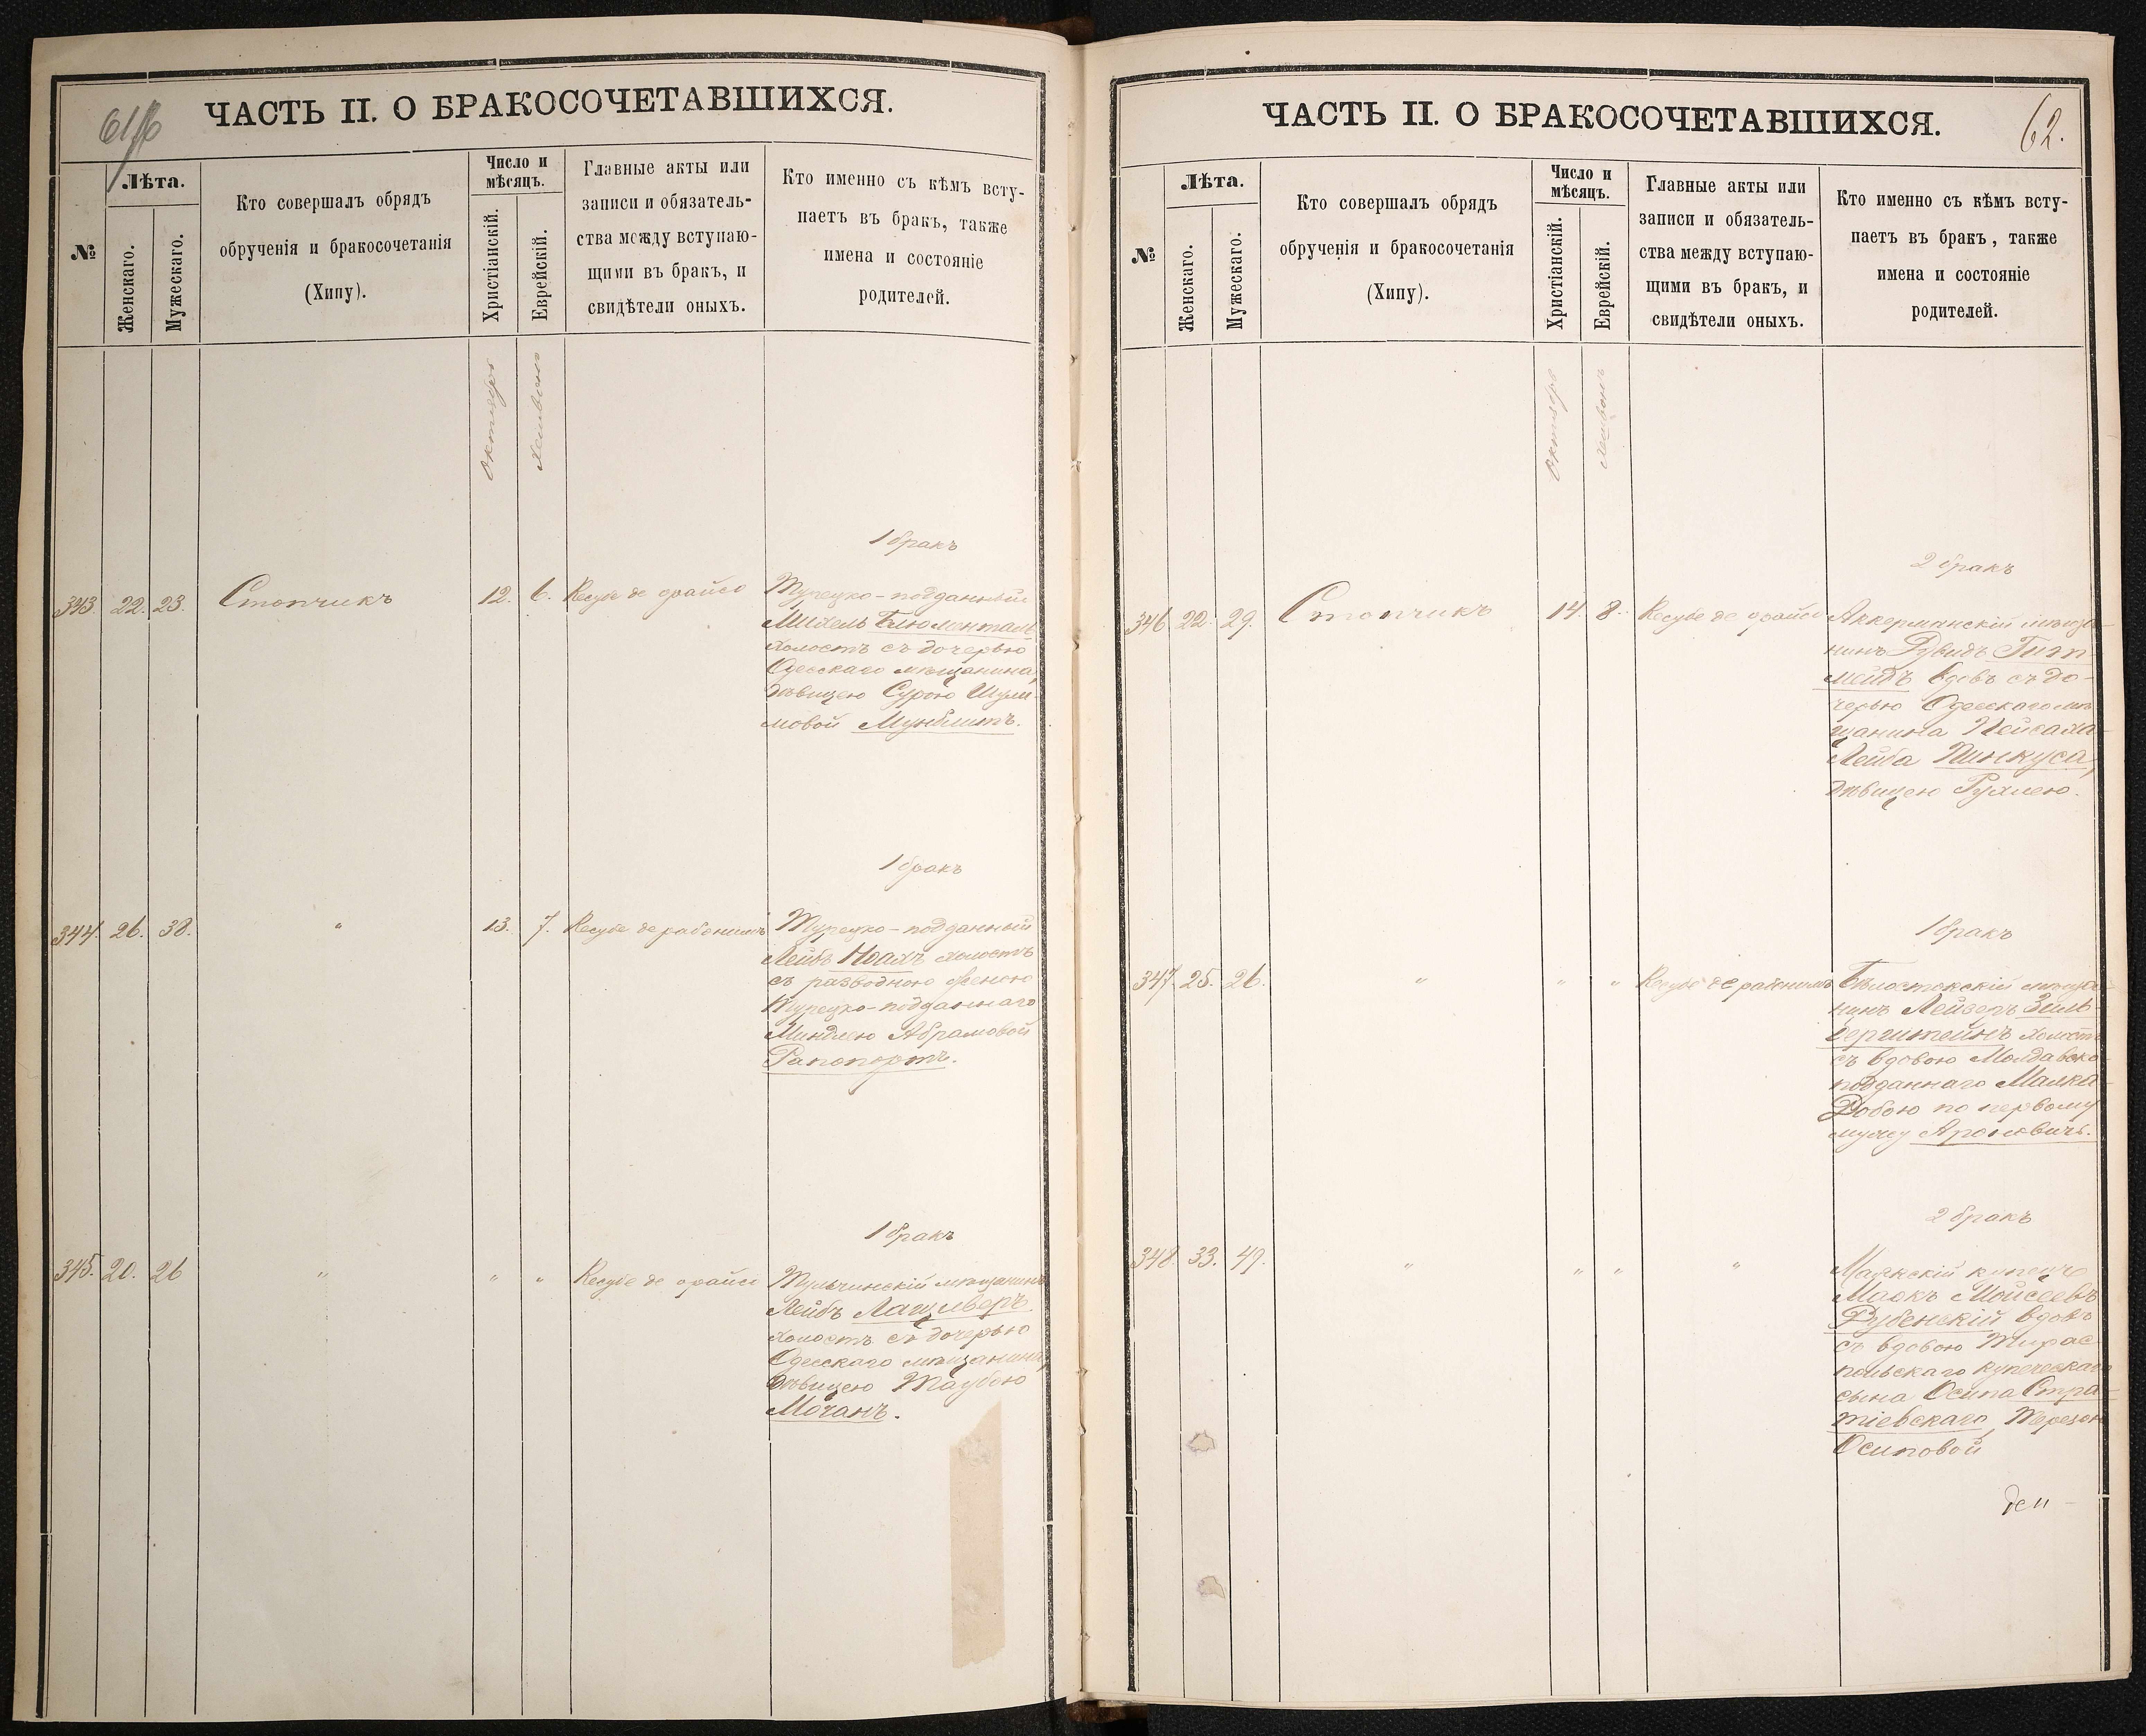 ЧАСТЬ II. О БРАКОСОЧЕТАВШИХСЯ.
№
Лѣта.
Женскаго.
Мужескаго.
Кто совершалъ обрядъ
обрученія и бракосочетанія
(Хипу).
Число и
мѣсяцъ.
Христіанскій.
Еврейскій.
Главные акты или
записи и обязатель-
ства между вступаю-
щими въ бракъ, и
свидѣтели оныхъ.
Кто именно съ кѣмъ всту-
паетъ въ бракъ, также
имена и состояніе
родителей.
Октябрь
Хешвонъ
1 бракъ
343. 22. 23. Стопчикъ 12. 6. Кесубе де орайсо
Турецко-подданный
Михель Блюменталь
холостъ съ дочерью
Одесскаго мѣщанина,
дѣвицею Сурою Шули-
мовой Мунблитъ.
1 бракъ
344. 26. 38. " 13. 7. Кесубе де рабонимъ
Турецко-подданный
Лейбъ Ноахъ холостъ
съ разводною женою
Турецко-подданнаго
Миндлею Абрамовой
Рапопортъ.
1 бракъ
345. 20. 26 " " " Кесубе де орайсо
Тульчинскій мѣщанинъ
Лейбъ
холостъ съ дочерью
Одесскаго мѣщанина,
дѣвицею Таубою
Мочанъ.
ЧАСТЬ II. О БРАКОСОЧЕТАВШИХСЯ.
62.
№
Лѣта.
Женскаго.
Мужескаго.
Кто совершалъ обрядъ
обрученія и бракосочетанія
(Хипу).
Число и
мѣсяцъ.
Христіанскій.
Еврейскій.
Главные акты или
записи и обязатель-
ства между вступаю-
щими въ бракъ, и
свидѣтели оныхъ.
Кто именно съ кѣмъ всту-
паетъ въ бракъ, также
имена и состояніе
родителей.
Октябрь
Хешвонъ
2 бракъ
346 22. 29. Стопчикъ 14. 8. Кесубе де орайсо
Аккерманскій мѣща-
нинъ Дувидъ
вдовъ съ до-
черью Одесскаго мѣ-
щанина Пейсаха-
Лейба Пинкуса,
дѣвицею Рухлею.
1 бракъ
347. 25. 26. " " " Кесубе де рабонимъ
Бѣлостокскій мѣща-
нинъ Лейзеръ Зиль-
берштейнъ холостъ
съ вдовою Молдавско-
подданнаго Малка-
Добою по первому
мужу Ароновичъ.
2 бракъ
348. 33. 49. " " " "
Маякскій купецъ
Маркъ Мойсеевъ
Рубенскій вдовъ
съ вдовою Тирас-
польскаго купеческаго
сына Осипа Стра-
тіевскаго, Терезою
Осиповой